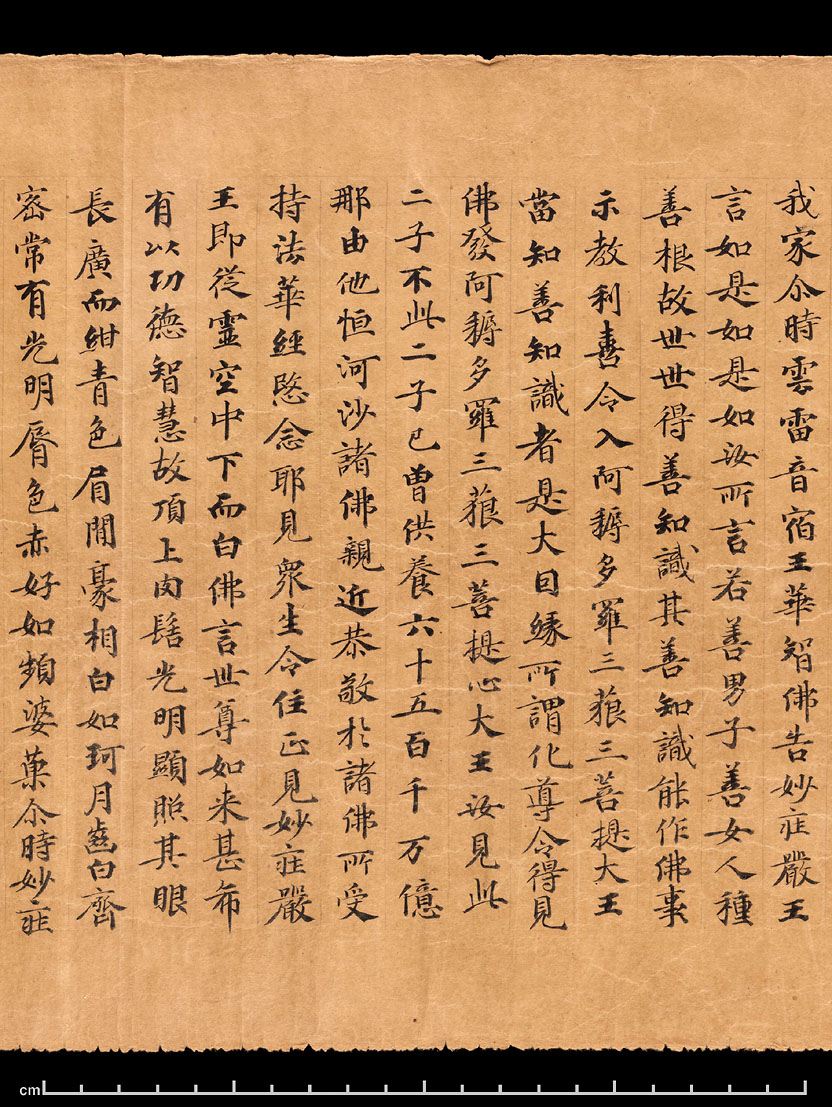 我家尒時雲雷音宿王華智佛告妙㽵嚴王
言如是如是如汝所言若善男子善女人種
善根故世世得善知識其善知識能作佛事
示教利憙令入阿耨多羅三藐三菩提大王
當知善知識者是大因緣所謂化導令得見
佛發阿耨多羅三藐三菩提心大王汝見此
二子不此二子已曽供養六十五百千万億
那由他恒河沙諸佛親近恭敬於諸佛所受
持法華經愍念耶見衆生令住正見妙㽵嚴
王即從靈空中下而白佛言世尊如来甚希
有以功德智慧故頂上肉髻光明顯照其眼
長廣而紺青色眉間豪相白如珂月齒白齊
密常有光明脣色赤好如頻婆菓尒時妙㽵
cm